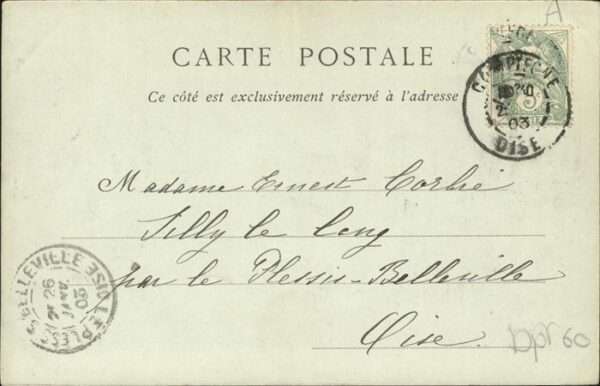 A
CARTE POSTALE
Ce côté est exclusivement réservé à l'adresse
COMPIEGNE
03
OISE
5
Madame Ernest Corbie
Silly le long
par le Plessis-Belleville
Oise.
BELLEVILLE OISE
26
JANV.
03
60